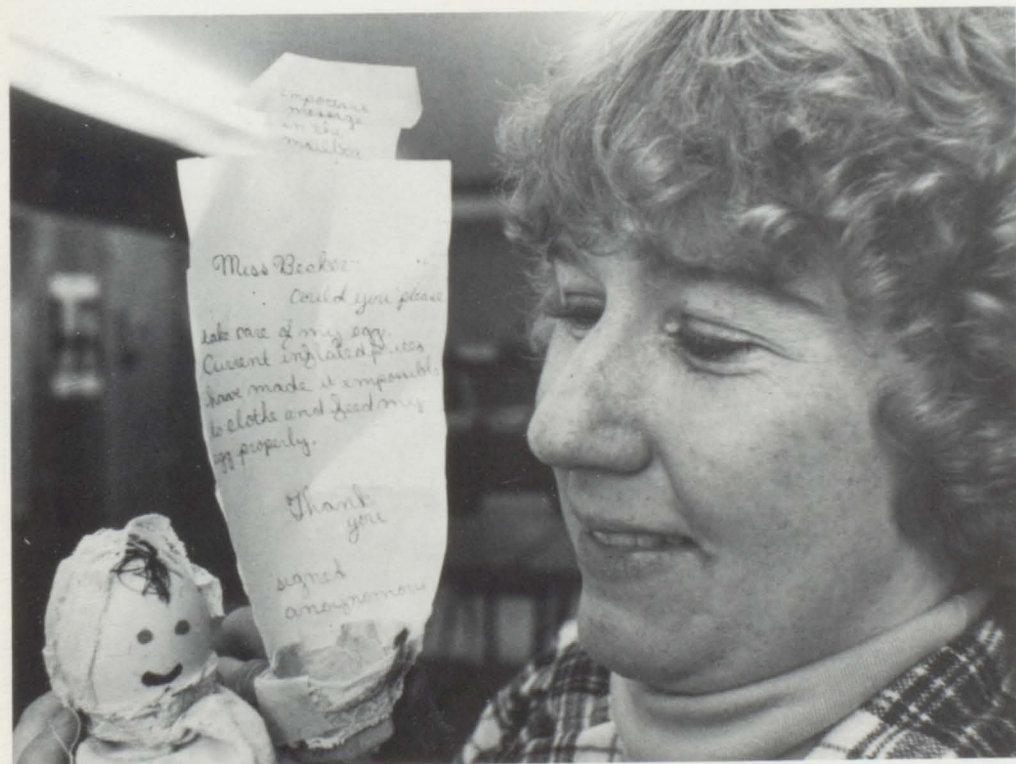 important
message
in the
mailbox
Miss Becker-
Could you please
take care of my egg.
Current inflated prices
have made it impossible
to clothe and feed my
egg properly.
Thank
you
signed
anoynomous